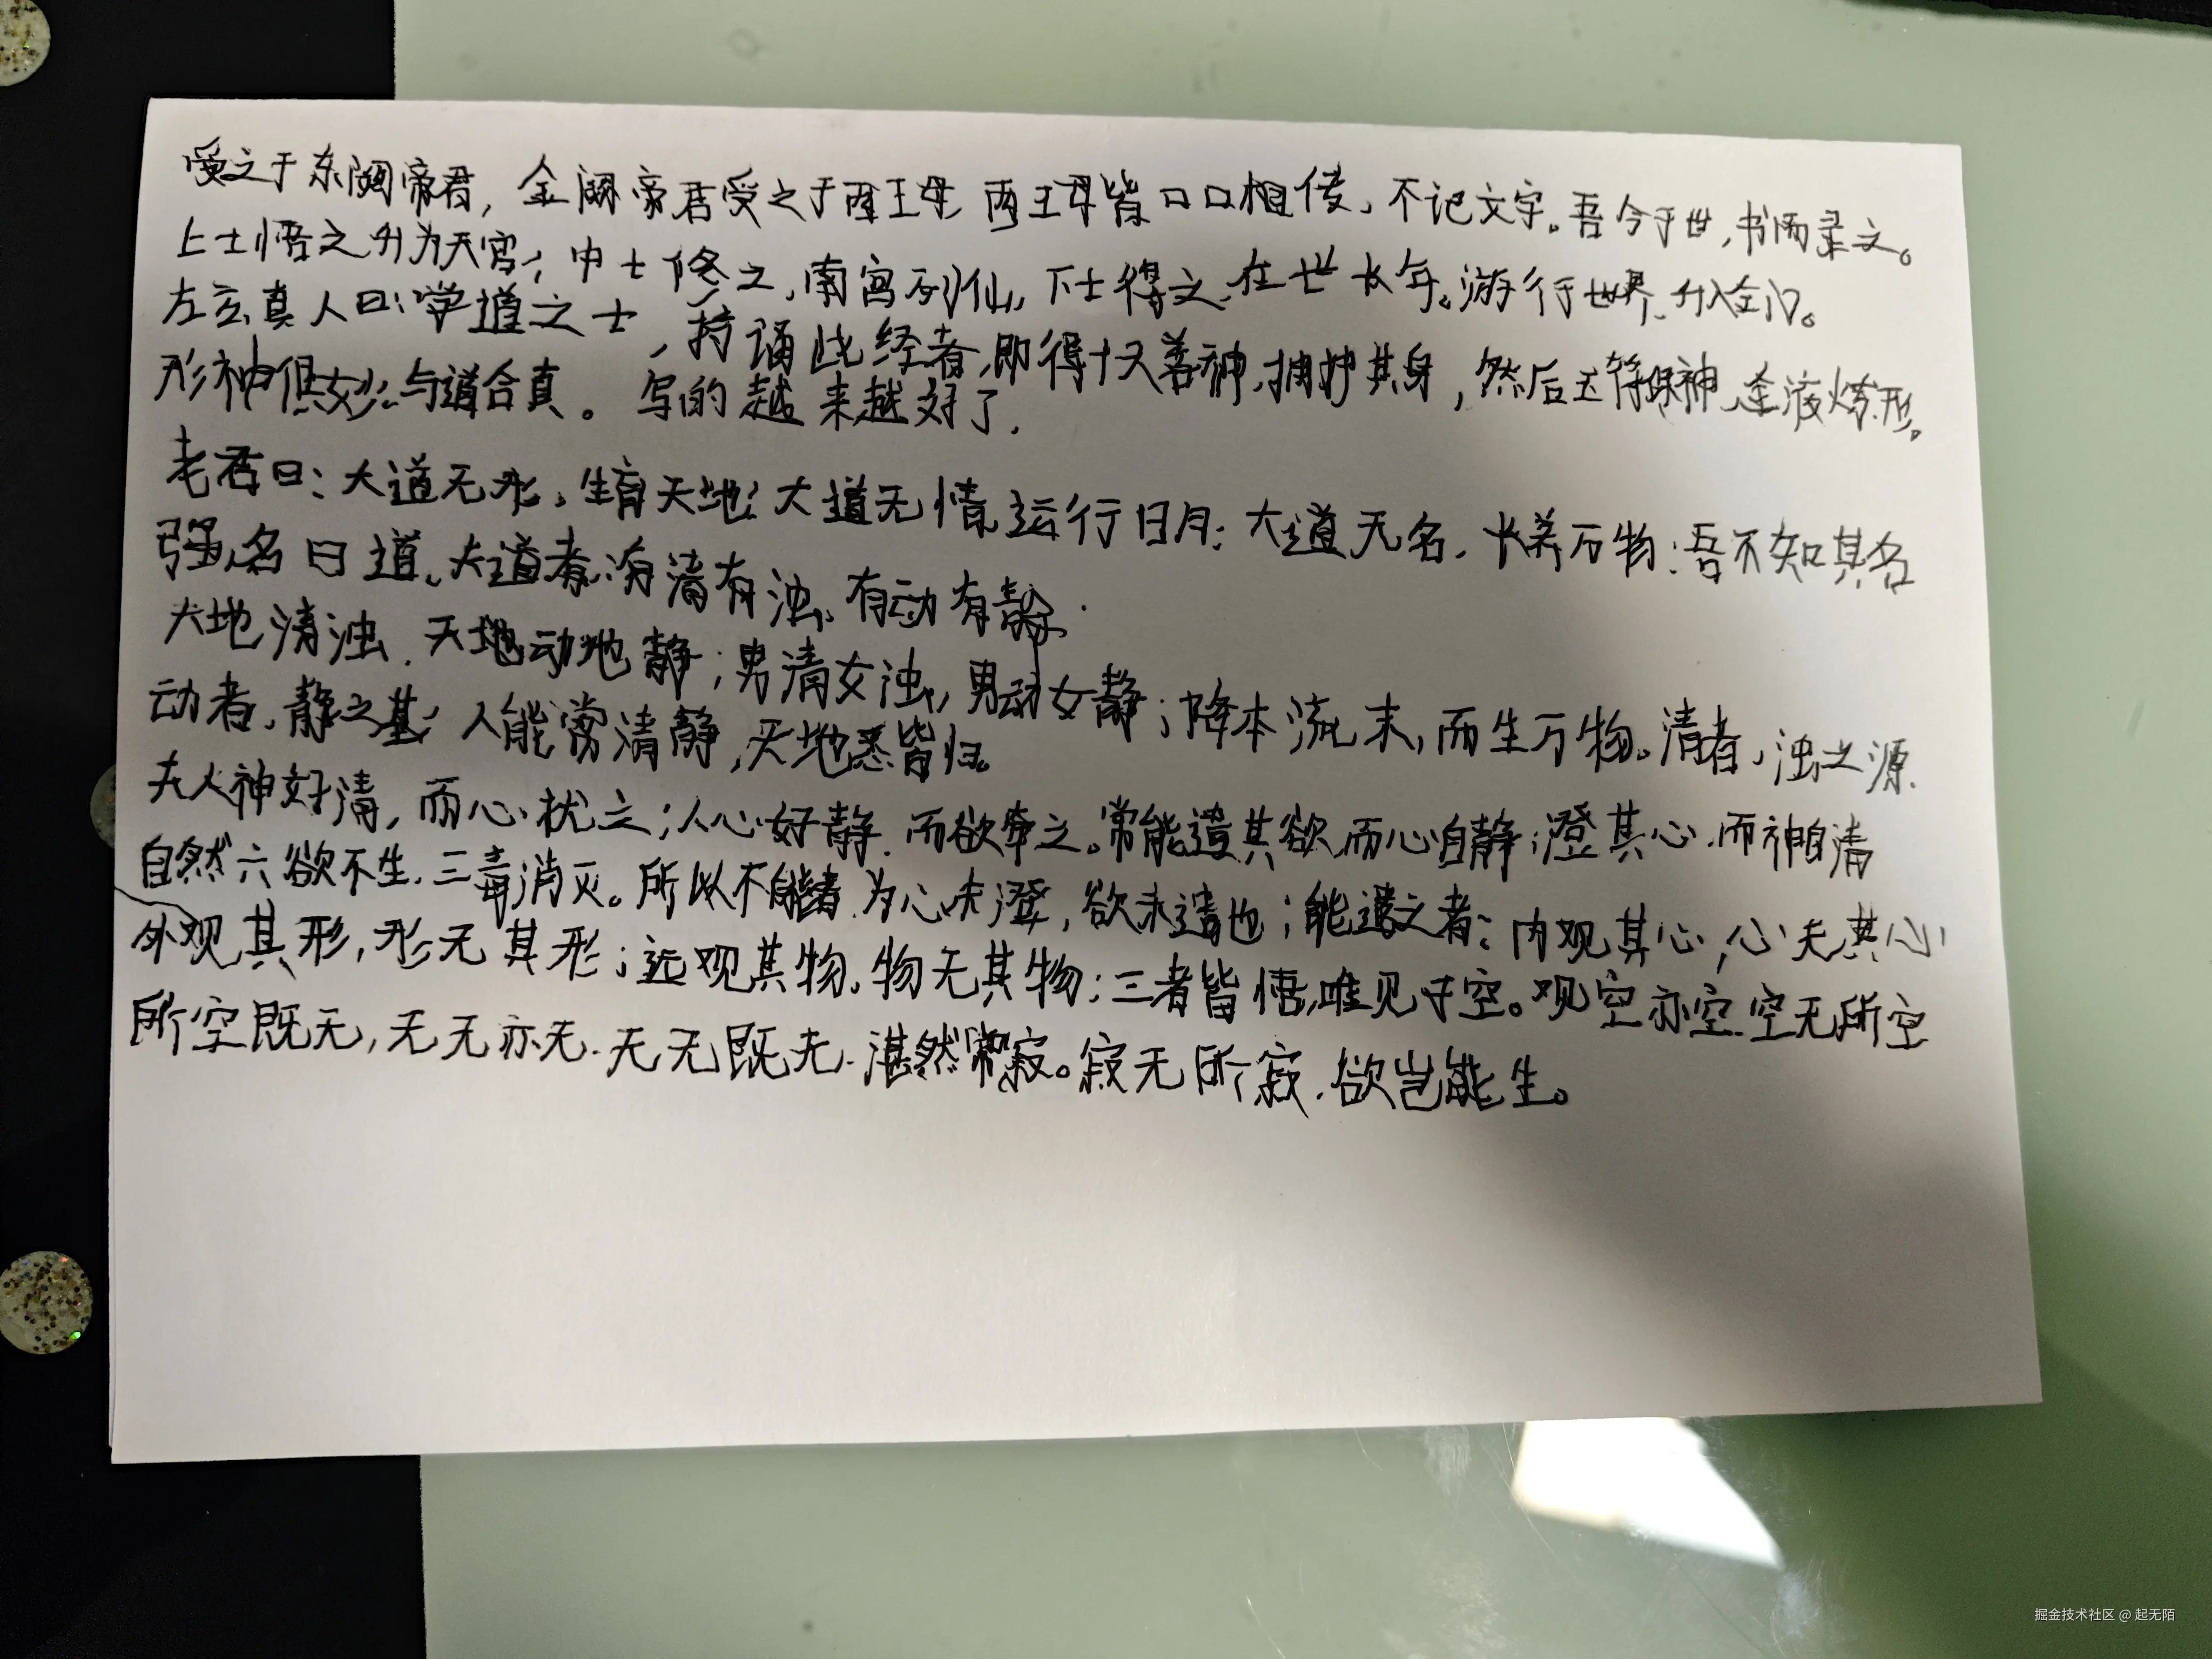 受之于东阙帝君，金阙帝君受之于西王母 西王母皆口口相传、不记文字。吾今于世，书而录之。
上士悟之升为天官；中士修之，南宫列仙，下士得之，在世长年。游行世界、升入金门。
左玄真人曰：学道之士，持诵此经者，即得十天善神，拥护其身，然后玉符保神、金液炼形。
形神俱妙、与道合真。写的越来越好了．
老君曰：大道无形，生育天地；大道无情，运行日月；大道无名，长养万物：吾不知其名
强名曰道、夫道者，有清有浊，有动有静．
天地清浊．天地动地静；男清女浊，男动女静；降本流末，而生万物。清者，浊之源．
动者，静之基；人能常清静，天地悉皆归。
夫人神好清，而心扰之；人心好静．而欲牵之。常能遣其欲，而心自静；澄其心．而神自清
自然六欲不生．三毒消灭。所以不能者．为心未澄，欲未遣也；能遣之者：内观其心，心无其心
外观其形，形无其形；远观其物，物无其物；三者皆悟，唯见于空。观空亦空．空无所空
所空既无，无无亦无．无无既无．湛然常寂。寂无所寂．欲岂能生。
掘金技术社区 @ 起无陌